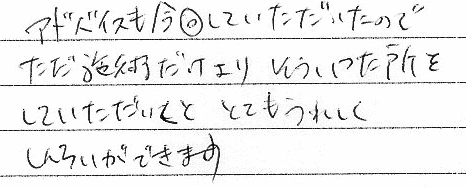 アドバイスも今回していただいたので
ただ施術だけより そういった所を
していただいくと とてもうれしく
しんらいができます